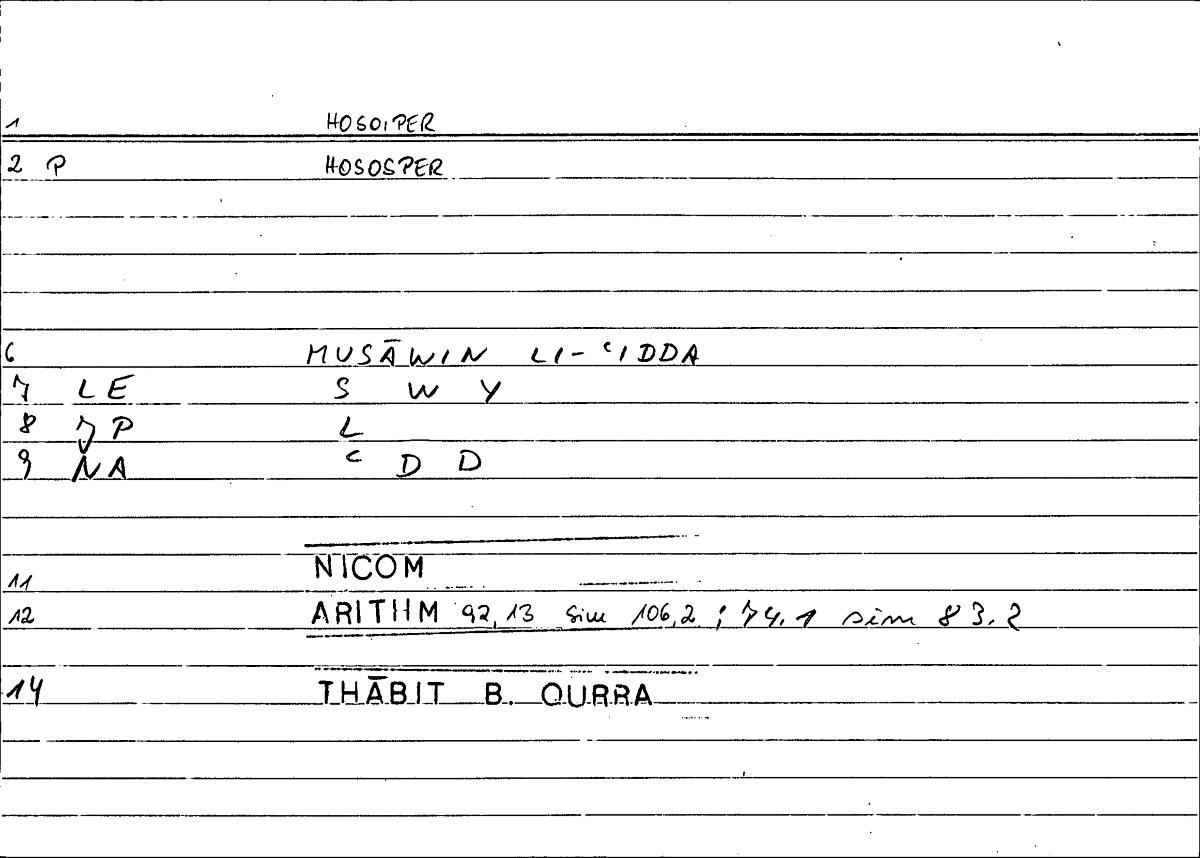 1 HOSOIPER
2 P HOSOSPER
6 MUSĀWIN LI-ʿIDDA
7 LE S W Y
8 JP L
9 NA ʿ D D
11 NICOM
12 ARITHM 92,13 sim 106,2 ; 74.1 sim 83.2
14 THĀBIT B. QURRA